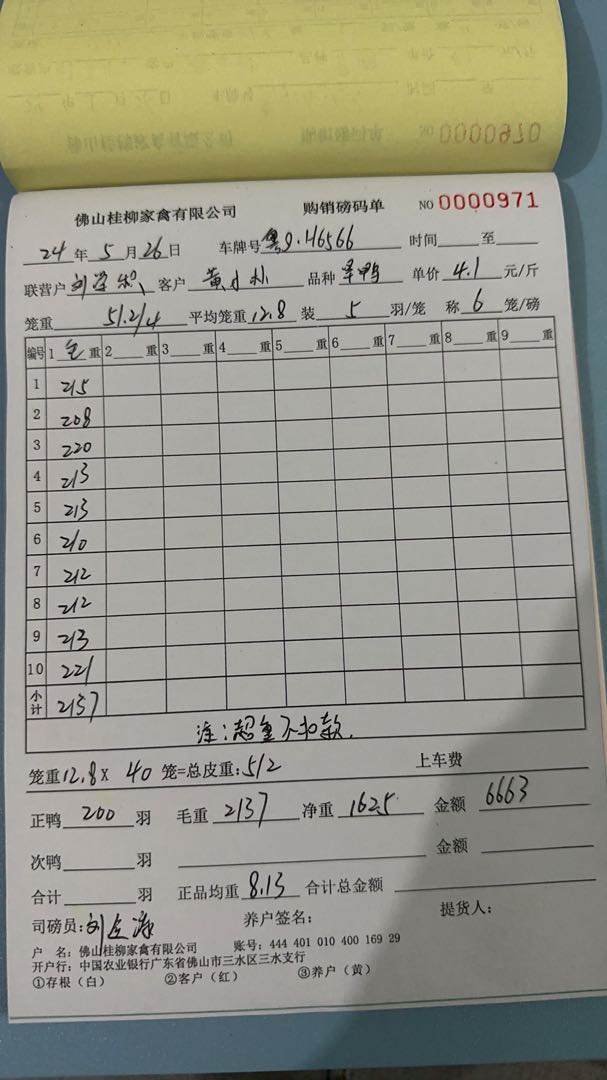 佛山桂柳家禽有限公司 购销磅码单 NO 0000971
24年5月26日 车牌号粤J·46566 时间 至
联营户刘学 客户 黄小 品种 鸭 单价 4.1 元/斤
笼重 51.2/4 平均笼重12.8 装 5 羽/笼 称 6 笼/磅
编号 1 毛 重 2 重 3 重 4 重 5 重 6 重 7 重 8 重 9 重
1 215
2 208
3 220
4 213
5 213
6 210
7 212
8 212
9 213
10 221
小计 2137
注：超重不扣款.
笼重12.8× 40 笼=总皮重:512 上车费
正鸭 200 羽 毛重 2137 净重 1625 金额 6663
次鸭 羽 金额
合计 羽 正品均重 8.13 合计总金额
司磅员:刘 养户签名: 提货人:
户 名：佛山桂柳家禽有限公司 账号：444 401 010 400 169 29
开户行：中国农业银行广东省佛山市三水区三水支行
①存根（白） ②客户（红） ③养户（黄）